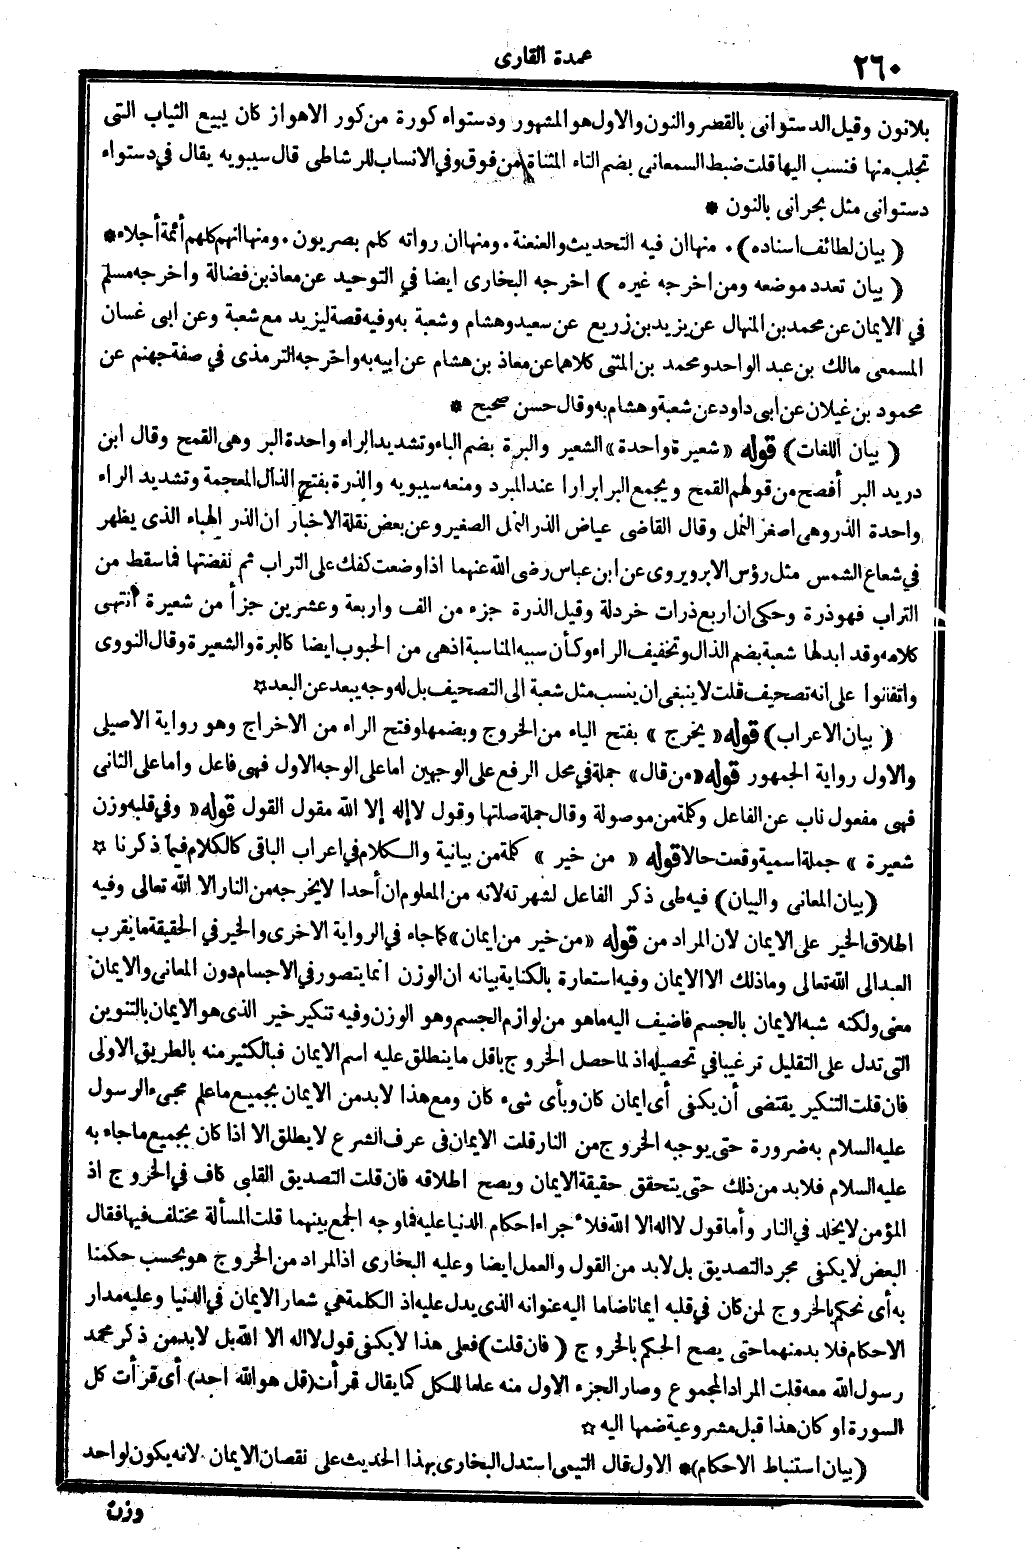 ٢٦٠
عمدة القارى
بلانون وقيل الدستوانى بالقصر والنون والاول هو المشهور ودستواء كورة من كور الاهواز كان يبيع الثياب التى
تجلب منها فنسب اليها قلت ضبط السمعانى بضم التاء المثناة من فوق وفي الانساب للرشاطى قال سيبويه يقال في دستواء
دستوانى مثل بحرانى بالنون *
( بيان لطائف اسناده ) . منها ان فيه التحديث والعنعنة . ومنها ان رواته كلهم بصريون . ومنها انهم كلهم أئمة أجلاء *
( بيان تعدد موضعه ومن اخرجه غيره ) اخرجه البخارى ايضا في التوحيد عن معاذ بن فضالة واخرجه مسلم
في الايمان عن محمد بن المنهال عن يزيد بن زريع عن سعيد وهشام وشعبة به وفيه قصة ليزيد مع شعبة وعن ابى غسان
المسمعى مالك بن عبد الواحد ومحمد بن المثنى كلاهما عن معاذ بن هشام عن ابيه به واخرجه الترمذى في صفة جهنم عن
محمود بن غيلان عن ابى داود عن شعبة وهشام به وقال حسن صحيح *
( بيان اللغات ) قوله « شعيرة واحدة » الشعير والبرة بضم الباء وتشديد الراء واحدة البر وهى القمح وقال ابن
دريد البر أفصح من قولهم القمح ويجمع البر ابرارا عند المبرد ومنعه سيبويه والذرة بفتح الذال المعجمة وتشديد الراء
واحدة الذر وهى اصغر النمل وقال القاضى عياض الذر النمل الصغير وعن بعض نقلة الاخبار ان الذر الهباء الذى يظهر
في شعاع الشمس مثل رؤس الابر ويروى عن ابن عباس رضى الله عنهما اذا وضعت كفك على التراب ثم نفضتها فما سقط من
التراب فهو ذرة وحكى ان اربع ذرات خردلة وقيل الذرة جزء من الف واربعة وعشرين جزأ من شعيرة انتهى
كلامه وقد ابدلها شعبة بضم الذال وتخفيف الراء وكأن سببه المناسبة اذ هى من الحبوب ايضا كالبرة والشعيرة وقال النووى
واتفقوا على انه تصحيف قلت لا ينبغى ان ينسب مثل شعبة الى التصحيف بل له وجه يبعد عن البعد ☆
( بيان الاعراب ) قوله « يخرج » بفتح الياء من الخروج وبضمها وفتح الراء من الاخراج وهو رواية الاصيلى
والاول رواية الجمهور قوله « من قال » جملة في محل الرفع على الوجهين اما على الوجه الاول فهى فاعل واما على الثانى
فهى مفعول ناب عن الفاعل وكلمة من موصولة وقال جملة صلتها وقول لا إله إلا الله مقول القول قوله « وفي قلبه وزن
شعيرة » جملة اسمية وقعت حالا قوله « من خير » كلمة من بيانية والكلام في اعراب الباقى كالكلام فيما ذكرنا ☆
( بيان المعانى والبيان ) فيه طى ذكر الفاعل لشهرته لانه من المعلوم ان أحدا لا يخرجه من النار الا الله تعالى وفيه
اطلاق الخير على الايمان لان المراد من قوله « من خير من ايمان » كما جاء في الرواية الاخرى والخير في الحقيقة ما يقرب
العبد الى الله تعالى وما ذلك الا الايمان وفيه استعارة بالكناية بيانه ان الوزن انما يتصور في الاجسام دون المعانى والايمان
معنى ولكنه شبه الايمان بالجسم فاضيف اليه ما هو من لوازم الجسم وهو الوزن وفيه تنكير خير الذى هو الايمان بالتنوين
التى تدل على التقليل ترغيبا في تحصيله اذ لما حصل الخروج باقل ما ينطلق عليه اسم الايمان فبالكثير منه بالطريق الاولى
فان قلت التنكير يقتضى أن يكفى أى ايمان كان وبأى شىء كان ومع هذا لابد من الايمان بجميع ما علم مجىء الرسول
عليه السلام به ضرورة حتى يوجبه الخروج من النار قلت الايمان فى عرف الشرع لا يطلق الا اذا كان بجميع ما جاء به
عليه السلام فلا بد من ذلك حتى يتحقق حقيقة الايمان ويصح اطلاقه فان قلت التصديق القلبى كاف في الخروج اذ
المؤمن لا يخلد في النار وأما قول لا اله الا الله فلاجراء احكام الدنيا عليه فما وجه الجمع بينهما قلت المسألة مختلف فيها فقال
البعض لا يكفى مجرد التصديق بل لابد من القول والعمل ايضا وعليه البخارى اذ المراد من الخروج هو بحسب حكمنا
به أى نحكم بالخروج لمن كان في قلبه ايمانا ضاما اليه عنوانه الذى يدل عليه اذ الكلمة هي شعار الايمان في الدنيا وعليه مدار
الاحكام فلا بد منهما حتى يصح الحكم بالخروج ( فان قلت ) فعلى هذا لا يكفى قول لا اله الا الله بل لابد من ذكر محمد
رسول الله معه قلت المراد المجموع وصار الجزء الاول منه علما للكل كما يقال قرأت ( قل هو الله احد ) أى قرأت كل
السورة او كان هذا قبل مشروعية ضمها اليه ☆
( بيان استنباط الاحكام ) * الاول قال التيمى استدل البخارى بهذا الحديث على نقصان الايمان لانه يكون لواحد
وزن